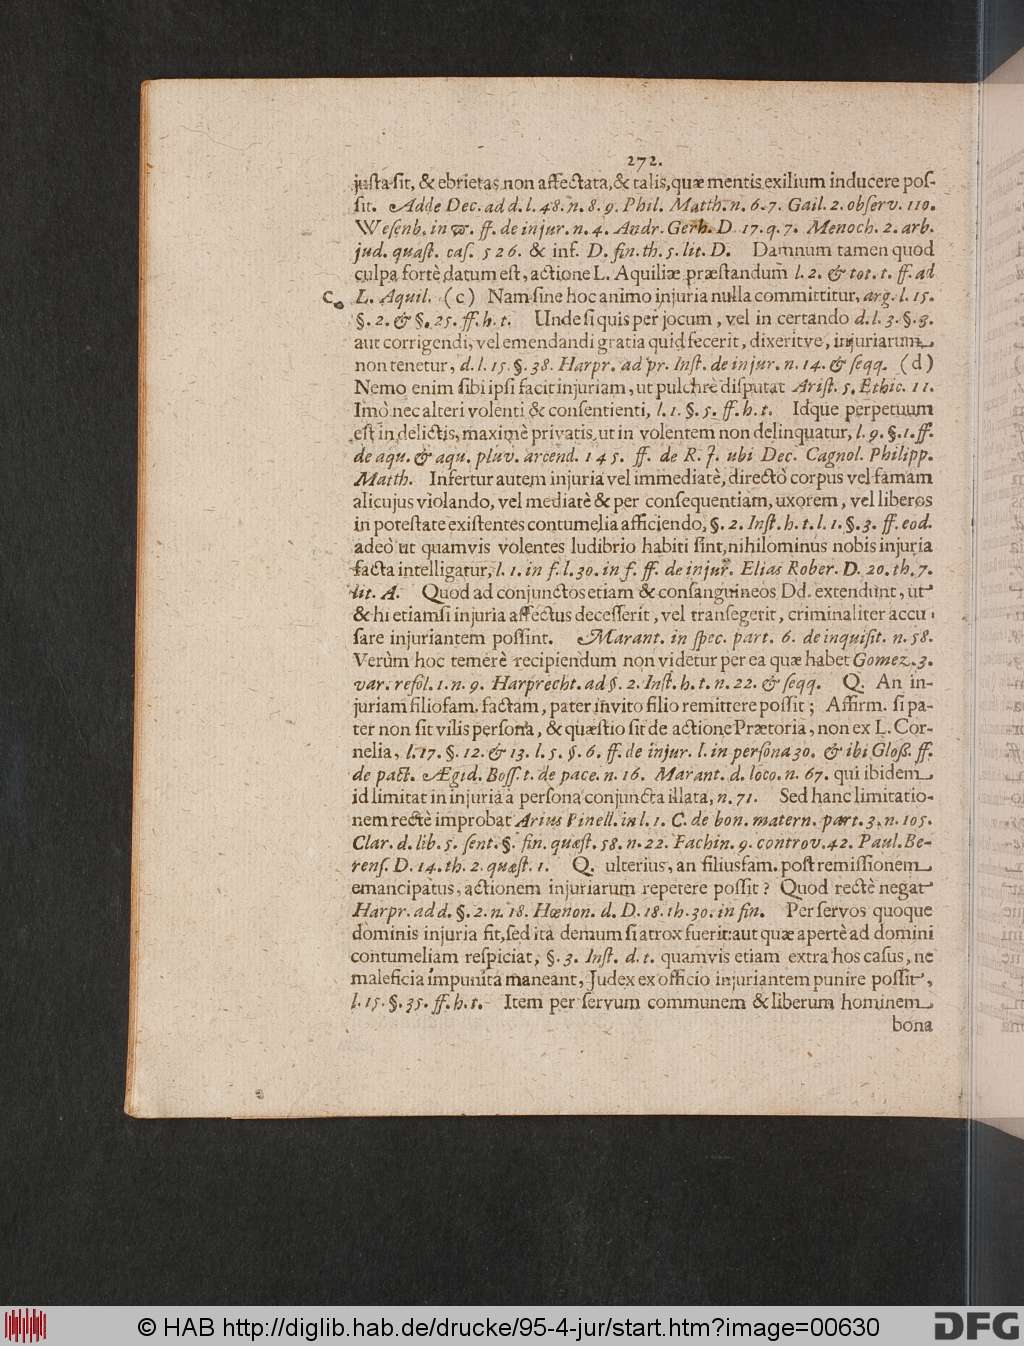 272.
justa sit, & ebrietas non affectata, & talis, quæ mentis exilium inducere pos-
sit. Adde Dec. ad d. l. 48. n. 8. 9. Phil. Matth. n. 6. 7. Gail. 2. observ. 110.
Wesenb. in ϖ. ff. de injur. n. 4. Andr. Gerh. D. 17. q. 7. Menoch. 2. arb.
jud. quæst. cas. 526. & inf. D. fin. th. 5. lit. D. Damnum tamen quod
culpa fortè datum est, actione L. Aquiliæ præstandum l. 2. & tot. t. ff. ad
C. L. Aquil. (c) Nam sine hoc animo injuria nulla committitur, arg. l. 15.
§. 2. & §. 25. ff. h. t. Unde si quis per jocum, vel in certando d. l. 3. §. 3.
aut corrigendi, vel emendandi gratia quid fecerit, dixeritve, injuriarum
non tenetur, d. l. 15. §. 38. Harpr. ad pr. Inst. de injur. n. 14. & seqq. (d)
Nemo enim sibi ipsi facit injuriam, ut pulchrè disputat Arist. 5. Ethic. 11.
Imò nec alteri volenti & consentienti, l. 1. §. 5. ff. h. t. Idque perpetuum
est in delictis, maximè privatis, ut in volentem non delinquatur, l. 9. §. 1. ff.
de aqu. & aqu. pluv. arcend. 145. ff. de R. J. ubi Dec. Cagnol. Philipp.
Matth. Infertur autem injuria vel immediatè, directò corpus vel famam
alicujus violando, vel mediatè & per consequentiam, uxorem, vel liberos
in potestate existentes contumelia afficiendo, §. 2. Inst. h. t. l. 1. §. 3. ff. eod.
adeò ut quamvis volentes ludibrio habiti sint, nihilominus nobis injuria
facta intelligatur, l. 1. in f. l. 30. in f. ff. de injur. Elias Rober. D. 20. th. 7.
lit. A. Quod ad conjunctos etiam & consanguineos Dd. extendunt, ut
& hi etiamsi injuria affectus decesserit, vel transegerit, criminaliter accu-
sare injuriantem possint. Marant. in spec. part. 6. de inquisit. n. 58.
Verùm hoc temerè recipiendum non videtur per ea quæ habet Gomez. 3.
var. resol. 1. n. 9. Harprecht. ad §. 2. Inst. h. t. n. 22. & seqq. Q. An in-
juriam filiofam. factam, pater invito filio remittere possit; Affirm. si pa-
ter non sit vilis persona, & quæstio sit de actione Prætoria, non ex L. Cor-
nelia, l. 17. §. 12. & 13. l. 5. §. 6. ff. de injur. l. in persona 30. & ibi Gloß. ff.
de pact. Ægid. Boss. t. de pace. n. 16. Marant. d. loco. n. 67. qui ibidem
id limitat in injuria a persona conjuncta illata, n. 71. Sed hanc limitatio-
nem rectè improbat Arius Pinell. in l. 1. C. de bon. matern. part. 3. n. 105.
Clar. d. lib. 5. sent. §. fin. quæst. 58. n. 22. Fachin. 9. controv. 42. Paul. Be-
rens. D. 14. th. 2. quæst. 1. Q. ulterius, an filiusfam. post remissionem
emancipatus, actionem injuriarum repetere possit? Quod rectè negat
Harpr. ad d. §. 2. n. 18. Hœnon. d. D. 18. th. 30. in fin. Per servos quoque
dominis injuria fit, sed ita demum si atrox fuerit: aut quæ apertè ad domini
contumeliam respiciat, §. 3. Inst. d. t. quamvis etiam extra hos casus, ne
maleficia impunita maneant, Judex ex officio injuriantem punire possit,
l. 15. §. 35. ff. h. t. Item per servum communem & liberum hominem
bona
© HAB http://diglib.hab.de/drucke/95-4-jur/start.htm?image=00630
DFG